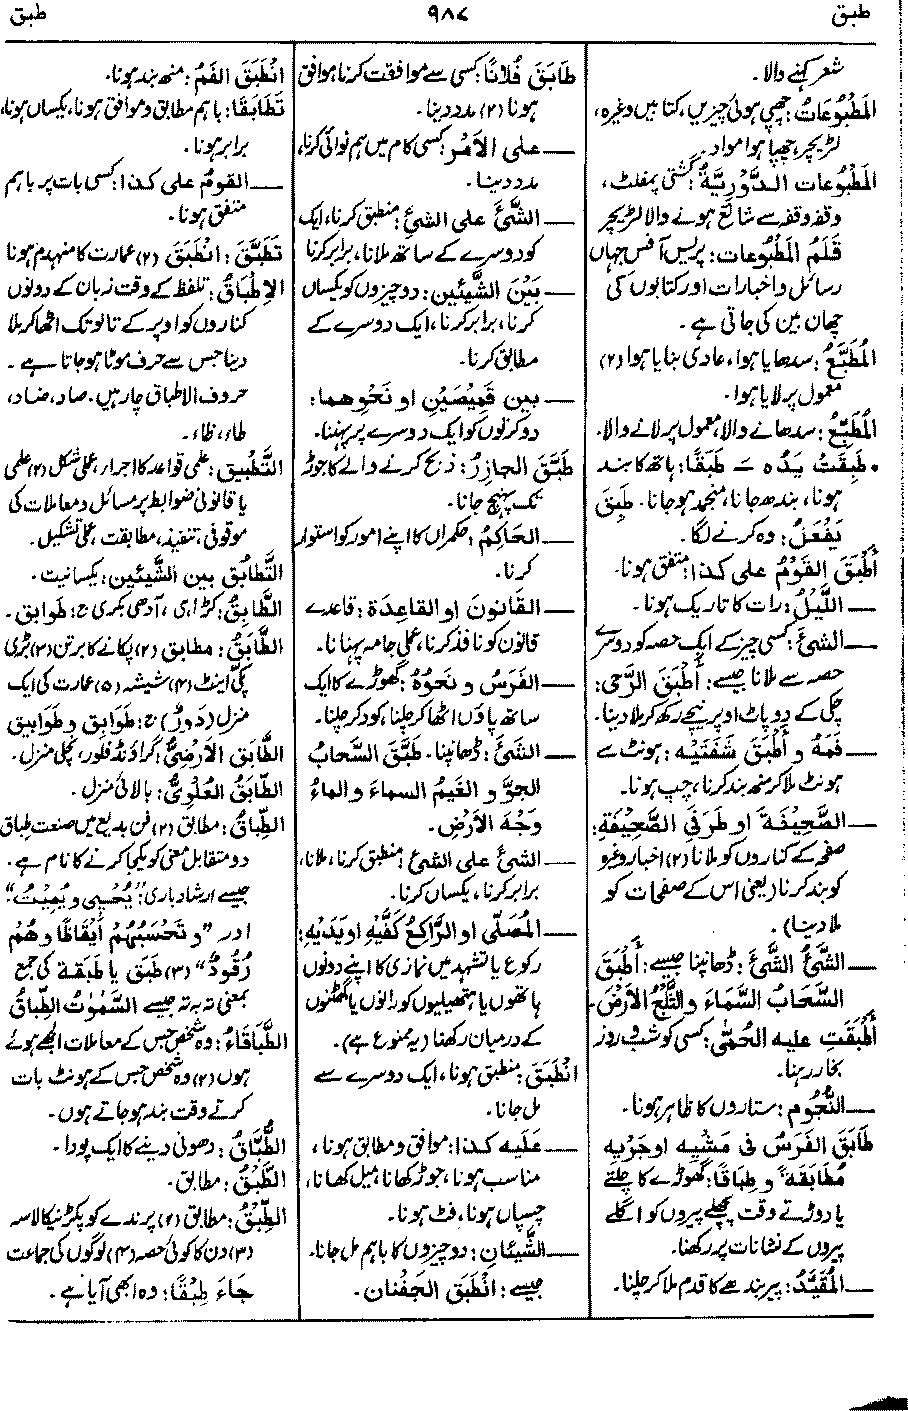 طبق
۹۸۷
طبق
شعر کہنے والا۔
المَطْبُوعَاتُ: چھپی ہوئی چیزیں، کتابیں وغیرہ،
لٹریچر، چھپا ہوا مواد۔
المَطْبُوعات الدَّوْرِيَّةُ: گشتی پمفلٹ،
وقفہ وقفہ سے شائع ہونے والا لٹریچر
قَلَمُ المَطْبُوعات: پریس آفس جہاں
رسائل و اخبارات اور کتابوں کی
چھان بین کی جاتی ہے۔
المُطَبَّعُ: سدھایا ہوا، عادی بنایا ہوا (۲)
معمول پر لایا ہوا۔
المُطَبِّعُ: سدھانے والا، معمول پر لانے والا۔
• طَبِقَتْ يَدُه ـَ طَبَقًا: ہاتھ کا بند
ہونا، بندھ جانا، منجمد ہو جانا۔ طَبِقَ
يَفْعَلُ: وہ کرنے لگا۔
أَطْبَقَ القَوْمُ على كذا: متفق ہونا۔
— اللَّيْلُ: رات کا تاریک ہونا۔
— الشئَ: کسی چیز کے ایک حصہ کو دوسرے
حصہ سے ملانا جیسے: أَطْبَقَ الرَّحى:
چکی کے دو پاٹ اوپر نیچے رکھ کر ملا دینا۔
— فَمَهُ و أَطْبَقَ شَفَتَيْه: ہونٹ سے
ہونٹ ملا کر منھ بند کرنا، چپ ہونا۔
— الصَّحِيفَةَ او طَرَفَي الصَّحِيفَةِ:
صفحے کے کناروں کو ملانا (۲) اخبار وغیرہ
کو بند کرنا (یعنی اس کے صفحات کو
ملا دینا)۔
— الشَّئُ الشَّئَ: ڈھانپنا جیسے: أَطْبَقَ
السَّحَابُ السَّمَاءَ و الثَّلْجُ الأَرْضَ۔
أَطْبَقَتْ عليه الحُمّٰى: کسی کو شب و روز
بخار رہنا۔
— النُّجُوم: ستاروں کا ظاہر ہونا۔
طَابَقَ الفَرَسُ فى مَشْيِه او جَرْيِه
مُطَابَقَةً و طِبَاقًا: گھوڑے کا چلتے
یا دوڑتے وقت پچھلے پیروں کو اگلے
پیروں کے نشانات پر رکھنا۔
— المُقَيَّدُ: پیر بندھے کا قدم ملا کر چلنا۔
طَابَقَ فُلانًا: کسی سے موافقت کرنا، موافق
ہونا (۲) مدد دینا۔
— على الأمْرِ: کسی کام میں ہم نوائی کرنا،
مدد دینا۔
— الشَّئَ على الشئِ: منطبق کرنا، ایک
کو دوسرے کے ساتھ ملانا، برابر کرنا
— بَيْنَ الشَّيْئَين: دو چیزوں کو یکساں
کرنا، برابر کرنا، ایک دوسرے کے
مطابق کرنا۔
— بين قَمِيصَيْنِ او نَحْوِهما:
دو کرتوں کو ایک دوسرے پر پہننا۔
طَبَّقَ الجازِرُ: ذبح کرنے والے کا جوڑ
تک پہنچ جانا۔
— الحَاكِمُ: حکمراں کا اپنے امور کو استوار
کرنا۔
— القَانُونَ او القاعِدَةَ: قاعدے
قانون کو نافذ کرنا، عملی جامہ پہنانا۔
— الفَرَسُ و نَحْوُهُ: گھوڑے کا ایک
ساتھ پاؤں اٹھا کر چلنا، کود کر چلنا۔
— الشئَ: ڈھانپنا۔ طَبَّقَ السَّحَابُ
الجوَّ و الغَيمُ السماءَ و الماءُ
وَجْهَ الأَرْضِ۔
— الشئَ على الشئِ: منطبق کرنا، ملانا،
برابر کرنا، یکساں کرنا۔
— المُصَلِّي او الرَّاكِعُ كَفَّيْهِ او يَدَيْهِ:
رکوع یا تشہد میں نمازی کا اپنے دونوں
ہاتھوں یا ہتھیلیوں کو رانوں یا گھٹنوں
کے درمیان رکھنا (یہ ممنوع ہے)۔
انْطَبَقَ: منطبق ہونا، ایک دوسرے سے
مل جانا۔
— عَلَيه كذا: موافق و مطابق ہونا،
مناسب ہونا، جوڑ کھانا، میل کھانا،
چسپاں ہونا، فٹ ہونا۔
— الشَّيْئان: دو چیزوں کا باہم مل جانا۔
جیسے: انْطَبَقَ الجَفْنان۔
انْطَبَقَ الفَمُ: منھ بند ہونا۔
تَطَابَقَا: باہم مطابق و موافق ہونا، یکساں ہونا،
برابر ہونا۔
— القومُ على كذا: کسی بات پر باہم
متفق ہونا۔
تَطَبَّقَ: انْطَبَقَ (۲) عمارت کا منہدم ہونا
الإطْبَاقُ: تلفظ کے وقت زبان کے دونوں
کناروں کو اوپر کے تالو تک اٹھا کر ملا
دینا جس سے حرف موٹا ہو جاتا ہے۔
حروف الاطباق چار ہیں۔ صاد، ضاد،
طاء، ظاء۔
التَّطْبِيق: علمی قواعد کا اجراء، عملی شکل (۲) علمی
یا قانونی ضوابط پر مسائل و معاملات کی
موقوفی، تنفیذ، مطابقت، عملی تشکیل۔
التَّطَابُق بين الشَّيْئَين: یکسانیت۔
الطَّابِقُ: کڑاہی، آدھی بکری ج: طَوابق۔
الطَّابَقُ: مطابق (۲) پکانے کا برتن (۳) بڑی
پکی اینٹ (۴) شیشہ (۵) عمارت کی ایک
منزل (دَوْرٌ) ج: طَوَابِق و طَوابيق
الطَّابَق الأرْضِيُّ: گراؤنڈ فلور، نچلی منزل۔
الطَّابَقُ العُلْوِيُّ: بالائی منزل۔
الطِّبَاقُ: مطابق (۲) فن بدیع میں صنعت طباق
دو متقابل معنی کو یکجا کرنے کا نام ہے۔
جیسے ارشاد باری: "يُحْيِي و يُمِيتُ"
اور "و تَحْسَبُهُمْ أَيْقَاظًا وهُمْ
رُقُودٌ" (۳) طَبَق یا طَبَقة کی جمع
بمعنی تہ بہ تہ جیسے السَّمٰوٰتُ الطِّبَاقُ
الطَّبَاقَاءُ: وہ شخص جس کے معاملات الجھے ہوئے
ہوں (۲) وہ شخص جس کے ہونٹ بات
کرتے وقت بند ہو جاتے ہوں۔
الطُّبَّاقُ: دھونی دینے کا ایک پودا۔
الطَّبْقُ: مطابق۔
الطِّبْقُ: مطابق (۲) پرندے کو پکڑنیکا لاسہ
(۳) دن کا کوئی حصہ (۴) لوگوں کی جماعت
جَاءَ طِبْقًا: وہ ابھی آیا ہے۔